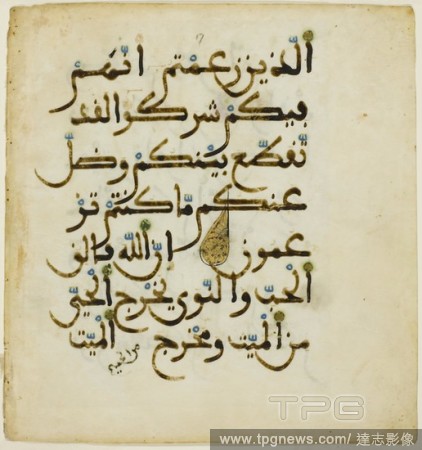 الذين زعمتم انهم
فيكم شركوا لقد
تقطع بينكم وضل
عنكم ما كنتم تز
عمون ان الله فالق
الحب والنوى يخرج الحي
من الميت ومخرج الميت
من الحي
TPG
www.tpgnews.com/ 達志影像